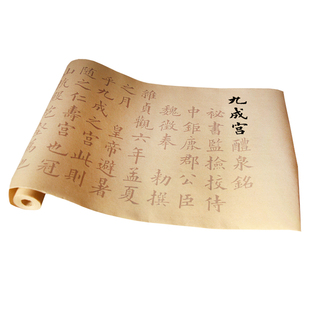 九成宫醴泉銘
祕書監撿挍侍
中鉅鹿郡公臣
魏徵奉 勅撰
維貞觀六年孟夏
之月 皇帝避暑
乎九成之宮此則
随之仁壽宮也冠